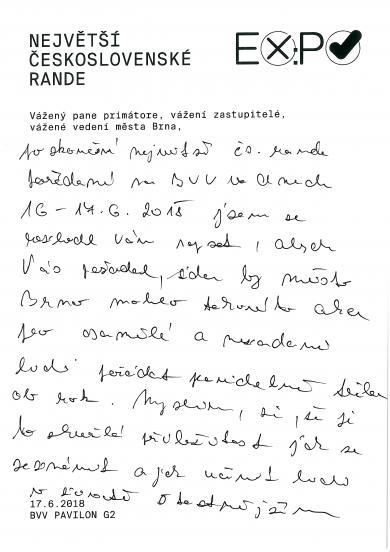 NEJVĚTŠÍ
ČESKOSLOVENSKÉ
RANDE
EX:PO
Vážený pane primátore, vážení zastupitelé,
vážené vedení města Brna,
po skončení největší čs. rande
pořádané na BVV ve dnech
16 - 17.6. 2018 jsem se
rozhodl Vám napsat, abych
Vás požádal, zda by město
Brno mohlo takovéto akce
pro osamělé a nezadané
lidi pořádat pravidelně
ob rok. Myslím si, že je
to skvělá příležitost jak se
seznámit a jak učinit lidi
v životě šťastnějším
17.6.2018
BVV PAVILON G2